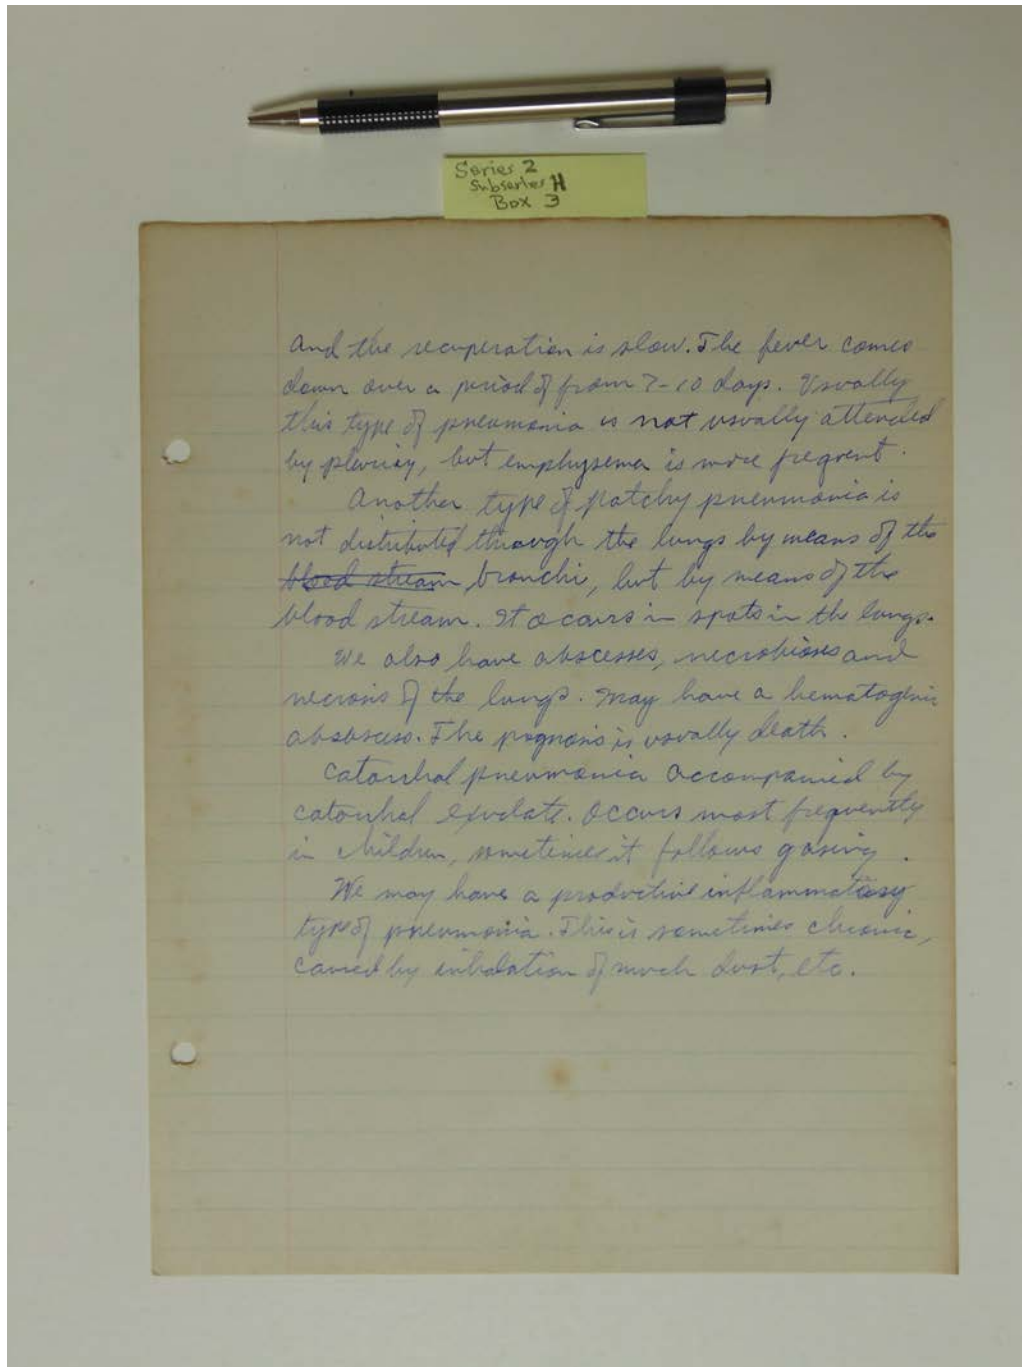 Series 2
Subseries H
Box 3
and the recuperation is slow. The fever comes
down over a period of from 7-10 days. Usually
this type of pneumonia is not usually attended
by pleurisy, but emphysema is more frequent.
Another type of patchy pneumonia is
not distributed through the lungs by means of the
blood stream bronchi, but by means of the
blood stream. It occurs in spots in the lungs.
We also have abscesses, necrobioses and
necrosis of the lungs. May have a hematogenic
absbscess. The prognosis is usually death.
Catarrhal pneumonia accompanied by
catarrhal exudate. Occurs most frequently
in children, sometimes it follows gasing.
We may have a productive inflammatory
type of pneumonia. This is sometimes chronic,
caused by inhalation of much dust, etc.